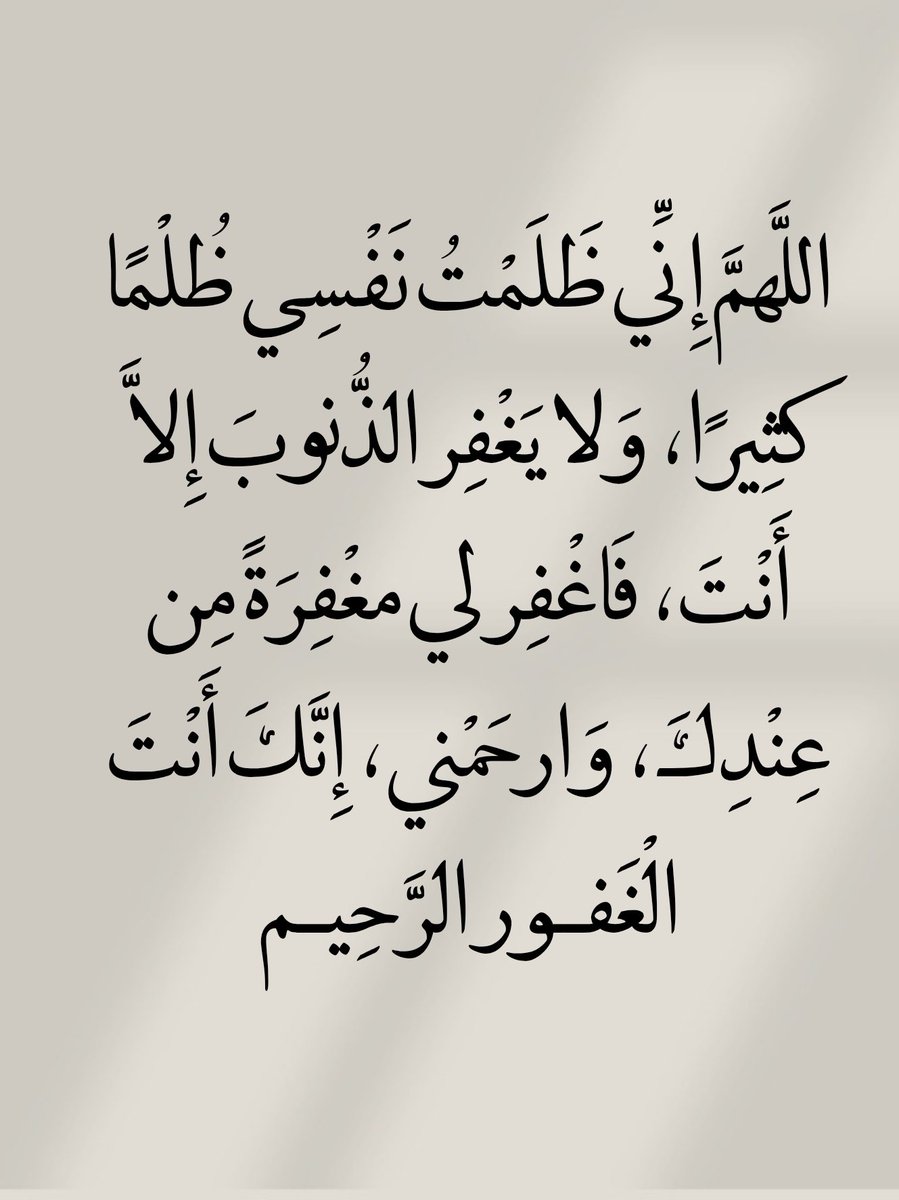 اللَّهمَّ إِنِّي ظَلَمْتُ نَفْسِي ظُلْمًا
كثِيرًا، وَلا يَغْفِر الذُّنوبَ إِلاَّ
أَنْتَ، فَاغْفِر لي مغْفِرَةً مِن
عِنْدِكَ، وَارحَمْني، إِنَّكَ أَنْتَ
الْغَفــور الرَّحِيــم